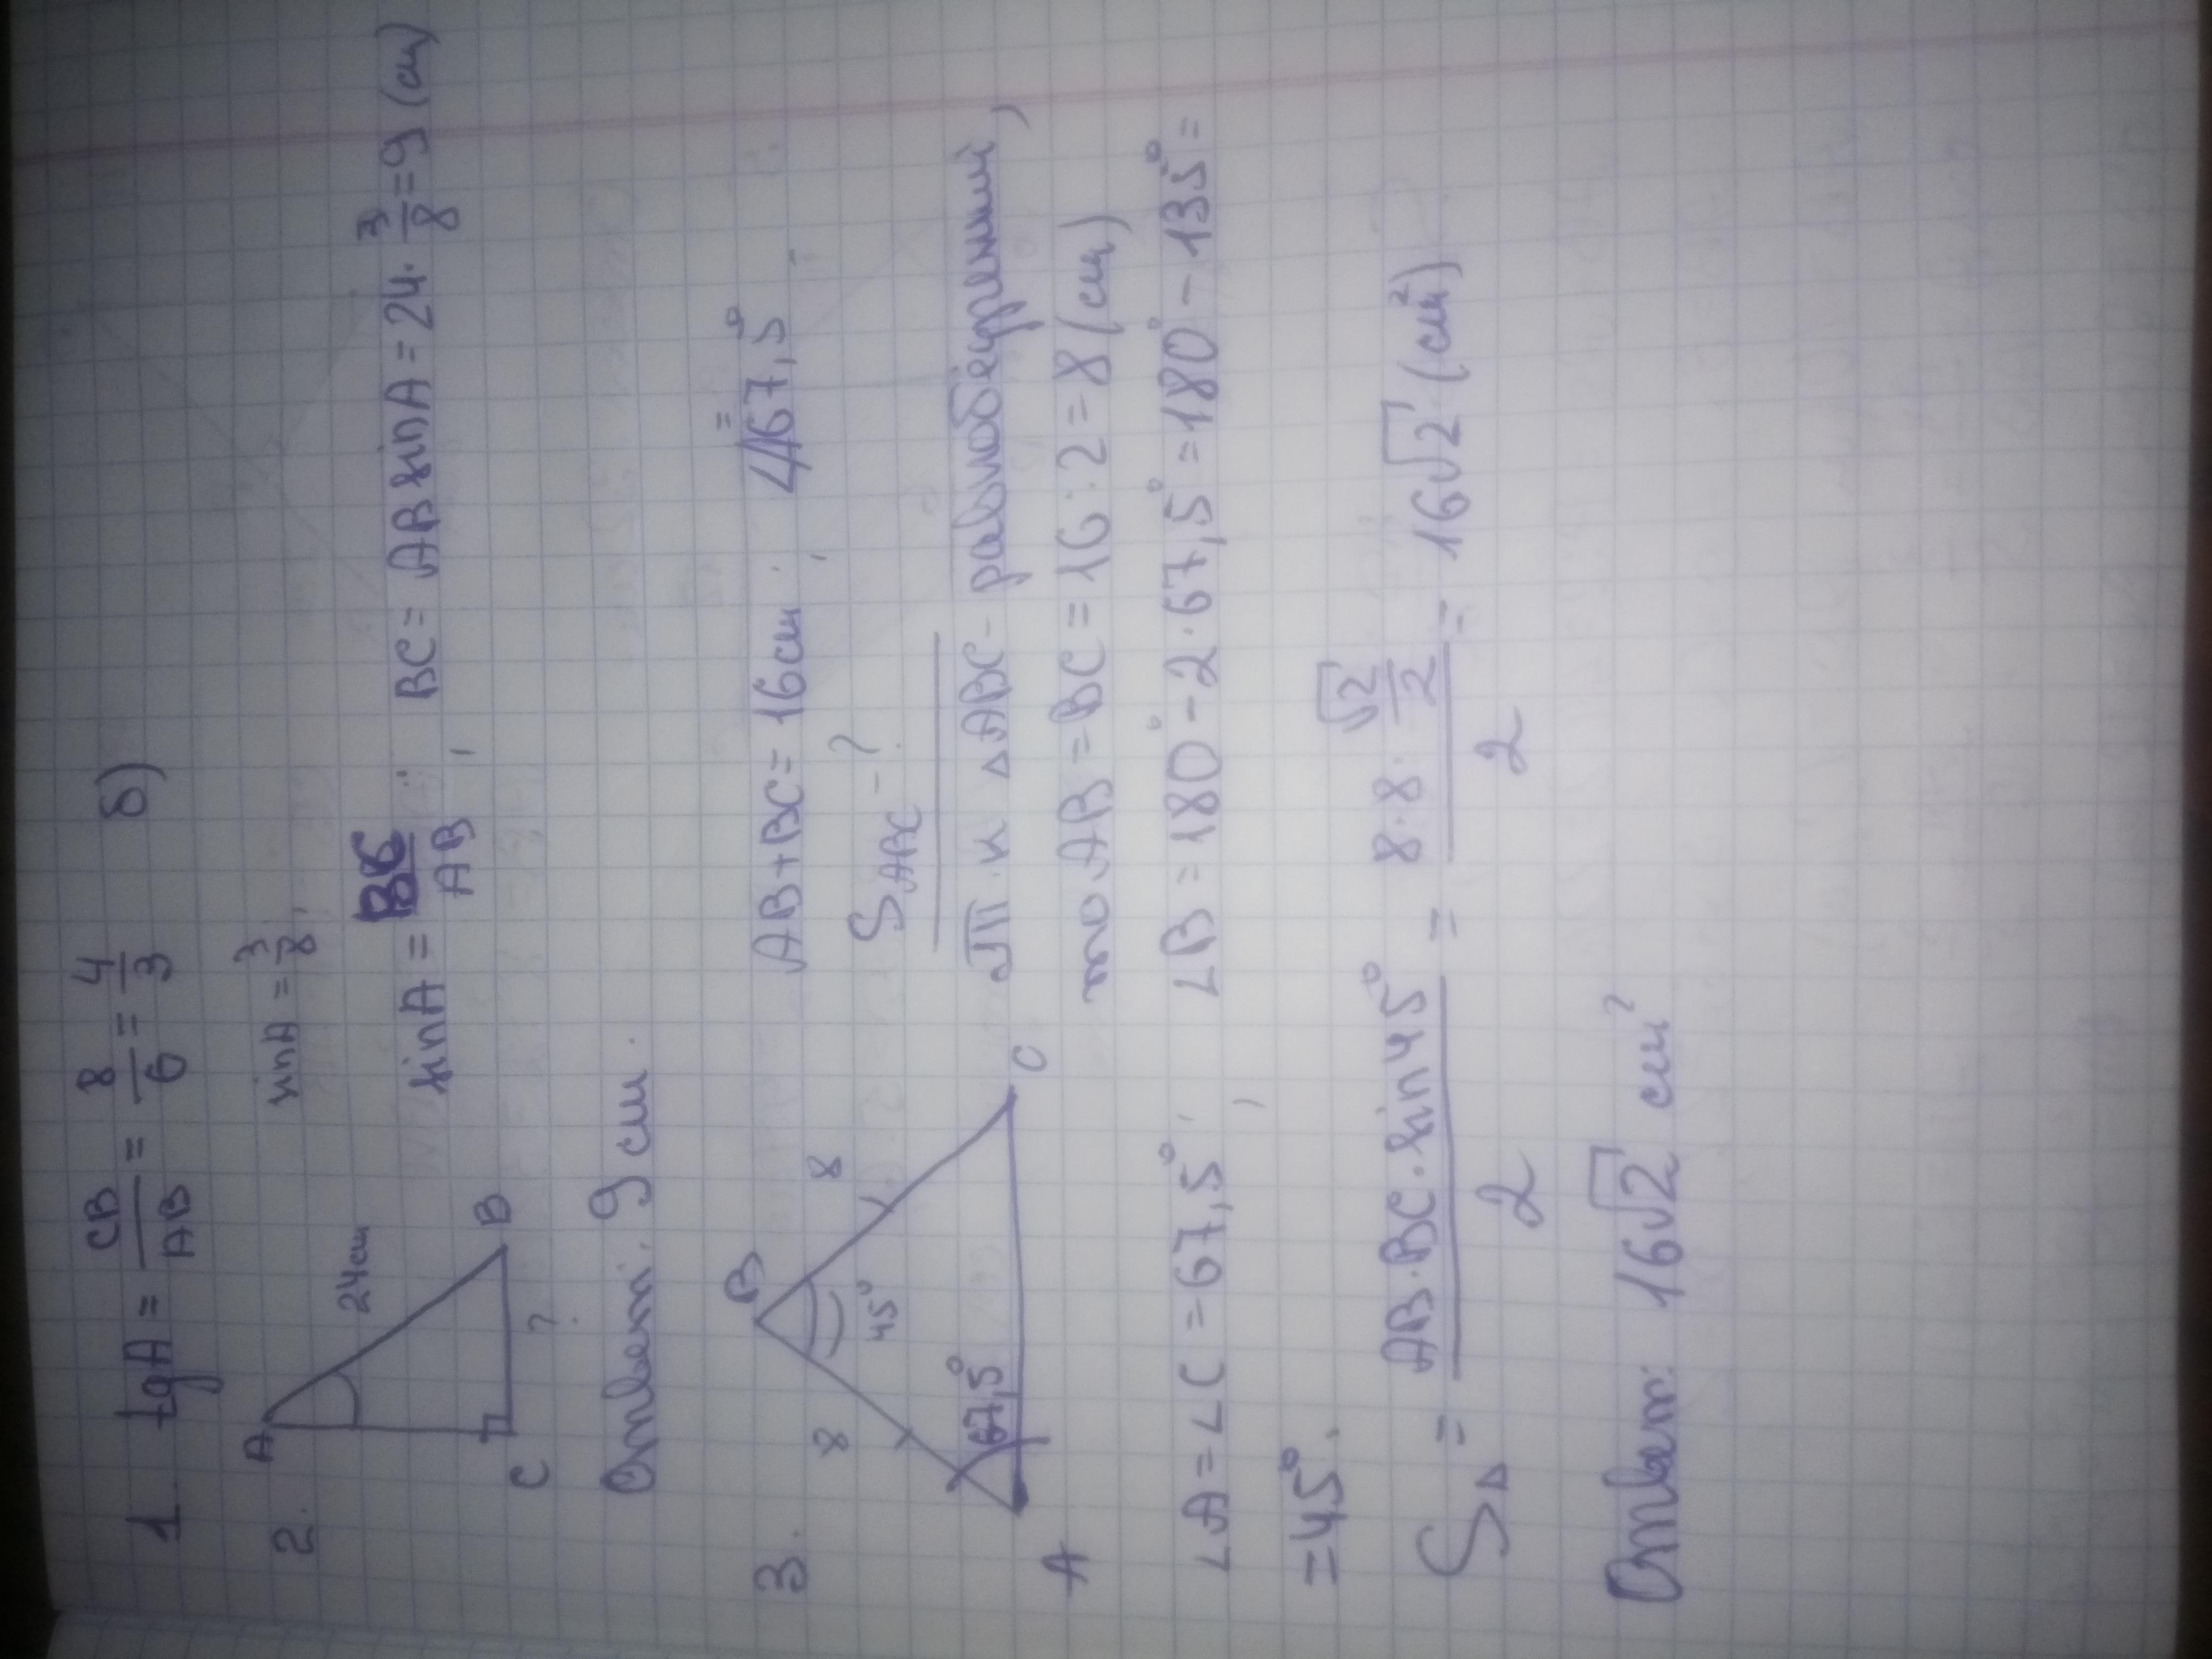 1. tgA = CB/AB = 8/6 = 4/3   б)
2. A 24см B C ? sinA = 3/8
sinA = BC/AB ; BC = AB sinA = 24 · 3/8 = 9 (см)
Ответ: 9 см.
3. B 8 8 45° 67,5° A C
AB+BC = 16см ; ∠A = 67,5°
S ABC - ?
Т. к ΔABC - равнобедренный,
то AB = BC = 16 : 2 = 8 (см)
∠A = ∠C = 67,5° ; ∠B = 180° - 2 · 67,5° = 180° - 135° =
= 45°.
SΔ = AB · BC · sin45°/2 = 8 · 8 · √2/2/2 = 16√2 (см²)
Ответ: 16√2 см²